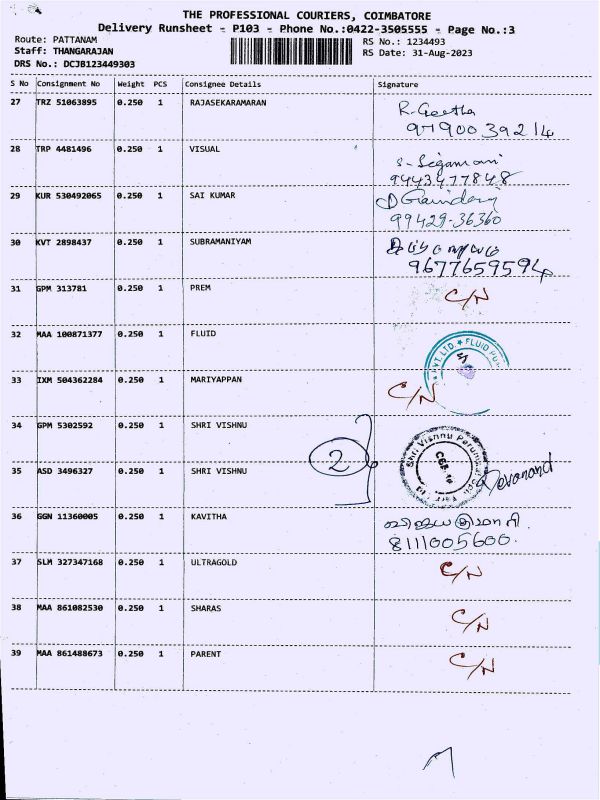 THE PROFESSIONAL COURIERS, COIMBATORE
Delivery Runsheet - P103 - Phone No.:0422-3505555 - Page No.:3
Route: PATTANAM
RS No.: 1234493
Staff: THANGARAJAN
RS Date: 31-Aug-2023
DRS No.: DCJB123449303
S No Consignment No Weight PCS Consignee Details Signature
27 TRZ 51063895 0.250 1 RAJASEKARAMARAN R. Geetha
9790039214
28 TRP 4481496 0.250 1 VISUAL
9443477848
29 KUR 530492065 0.250 1 SAI KUMAR
99429-36360
30 KVT 2898437 0.250 1 SUBRAMANIYAM
9677659594
31 GPM 313781 0.250 1 PREM C/N
32 MAA 100871377 0.250 1 FLUID
VT. LTD. ★ FLUID
33 IXM 504362284 0.250 1 MARIYAPPAN C/N
34 GPM 5302592 0.250 1 SHRI VISHNU
Shri Vishnu
2
35 ASD 3496327 0.250 1 SHRI VISHNU Devanand
36 GGN 11360005 0.250 1 KAVITHA
8111005600.
37 SLM 327347168 0.250 1 ULTRAGOLD C/N
38 MAA 861082530 0.250 1 SHARAS C/N
39 MAA 861488673 0.250 1 PARENT C/N